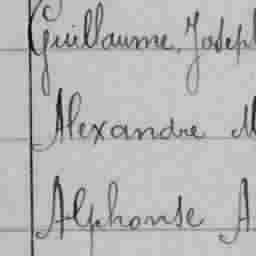 Guillaume, Joseph
Alexandre M
Alphonse A